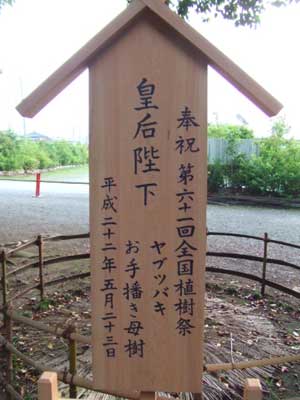 奉祝 第六十一回全国植樹祭
皇后陛下
ヤブツバキ
お手播き母樹
平成二十二年五月二十三日